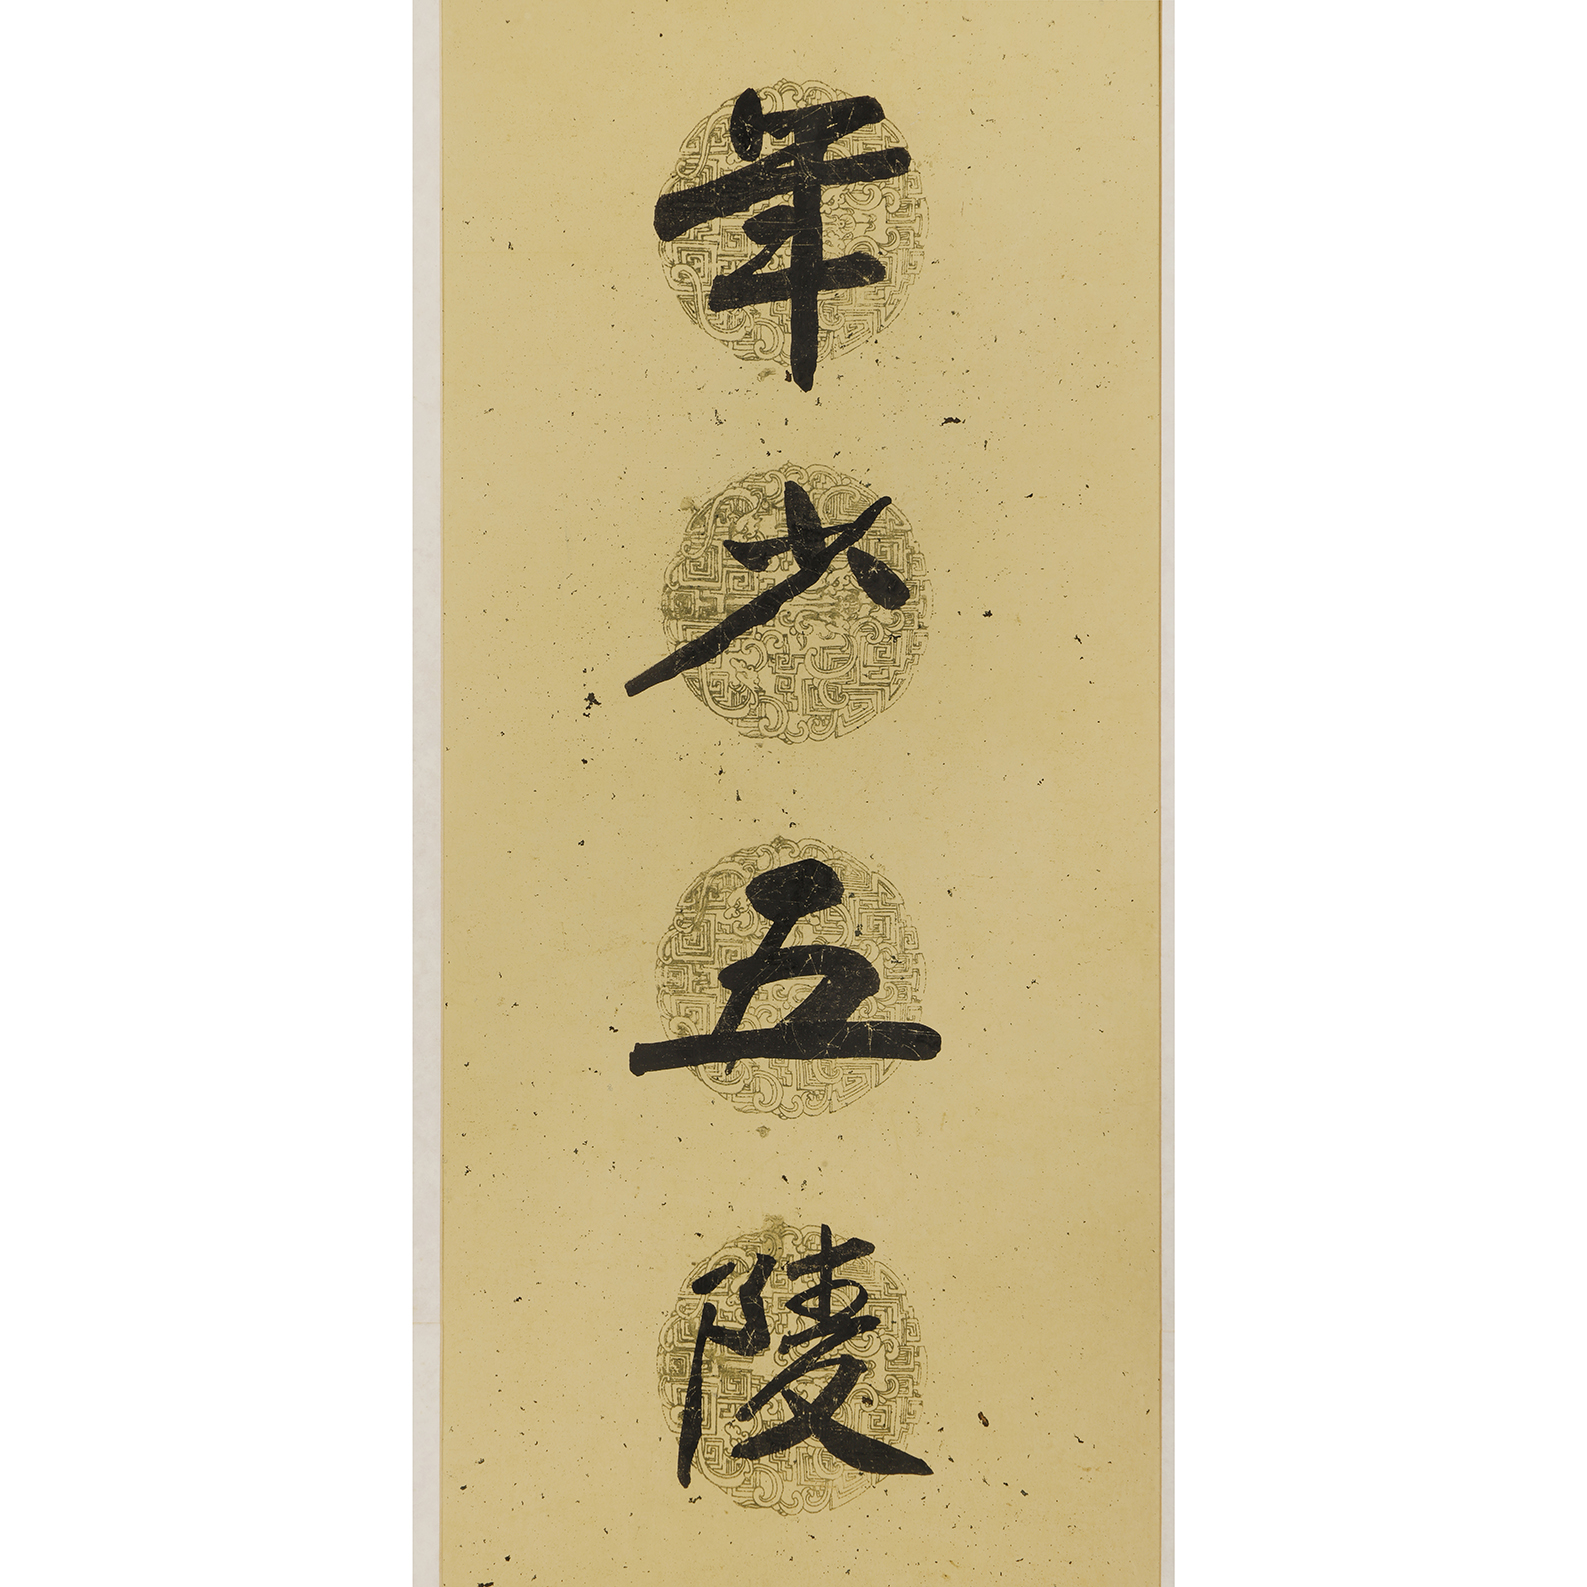 年少五陵